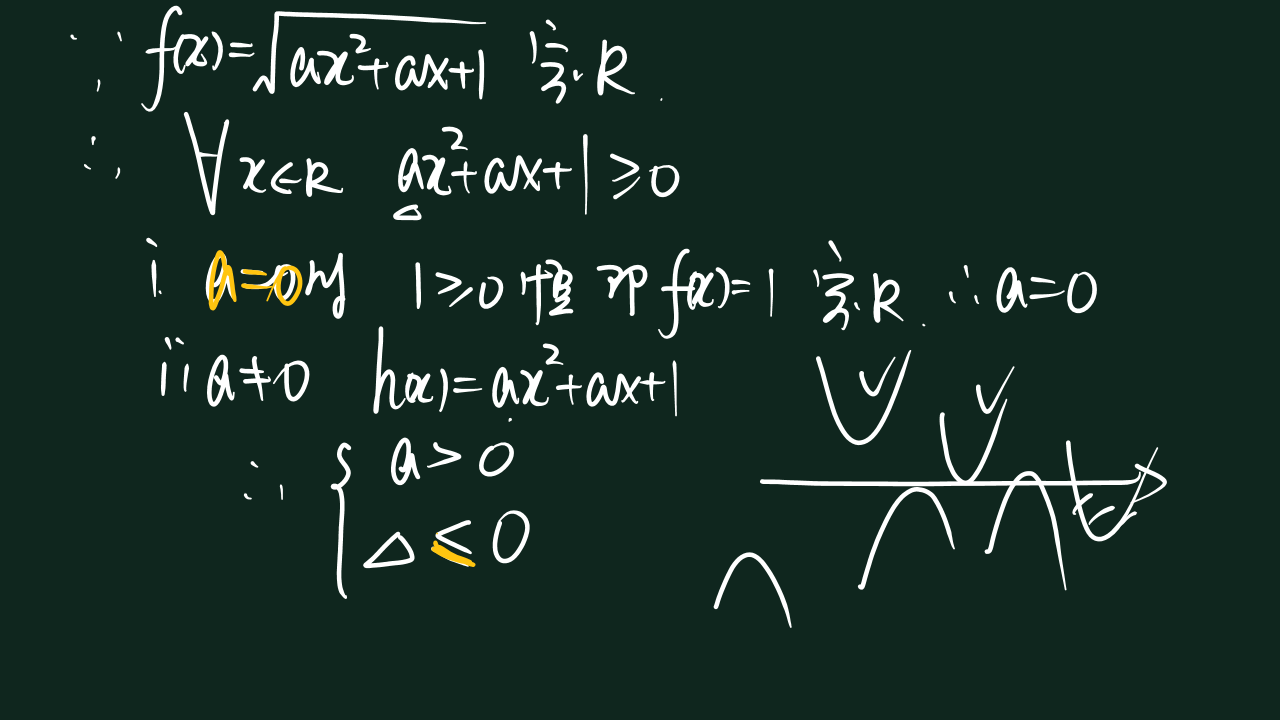 ∵ f(x)=√(ax²+ax+1) 定. R
∴ ∀x∈R ax²+ax+1≥0
i. a=0时 1≥0 恒 即 f(x)=1 定. R ∴ a=0
ii a≠0 h(x)=ax²+ax+1
∴ { a>0
△≤0